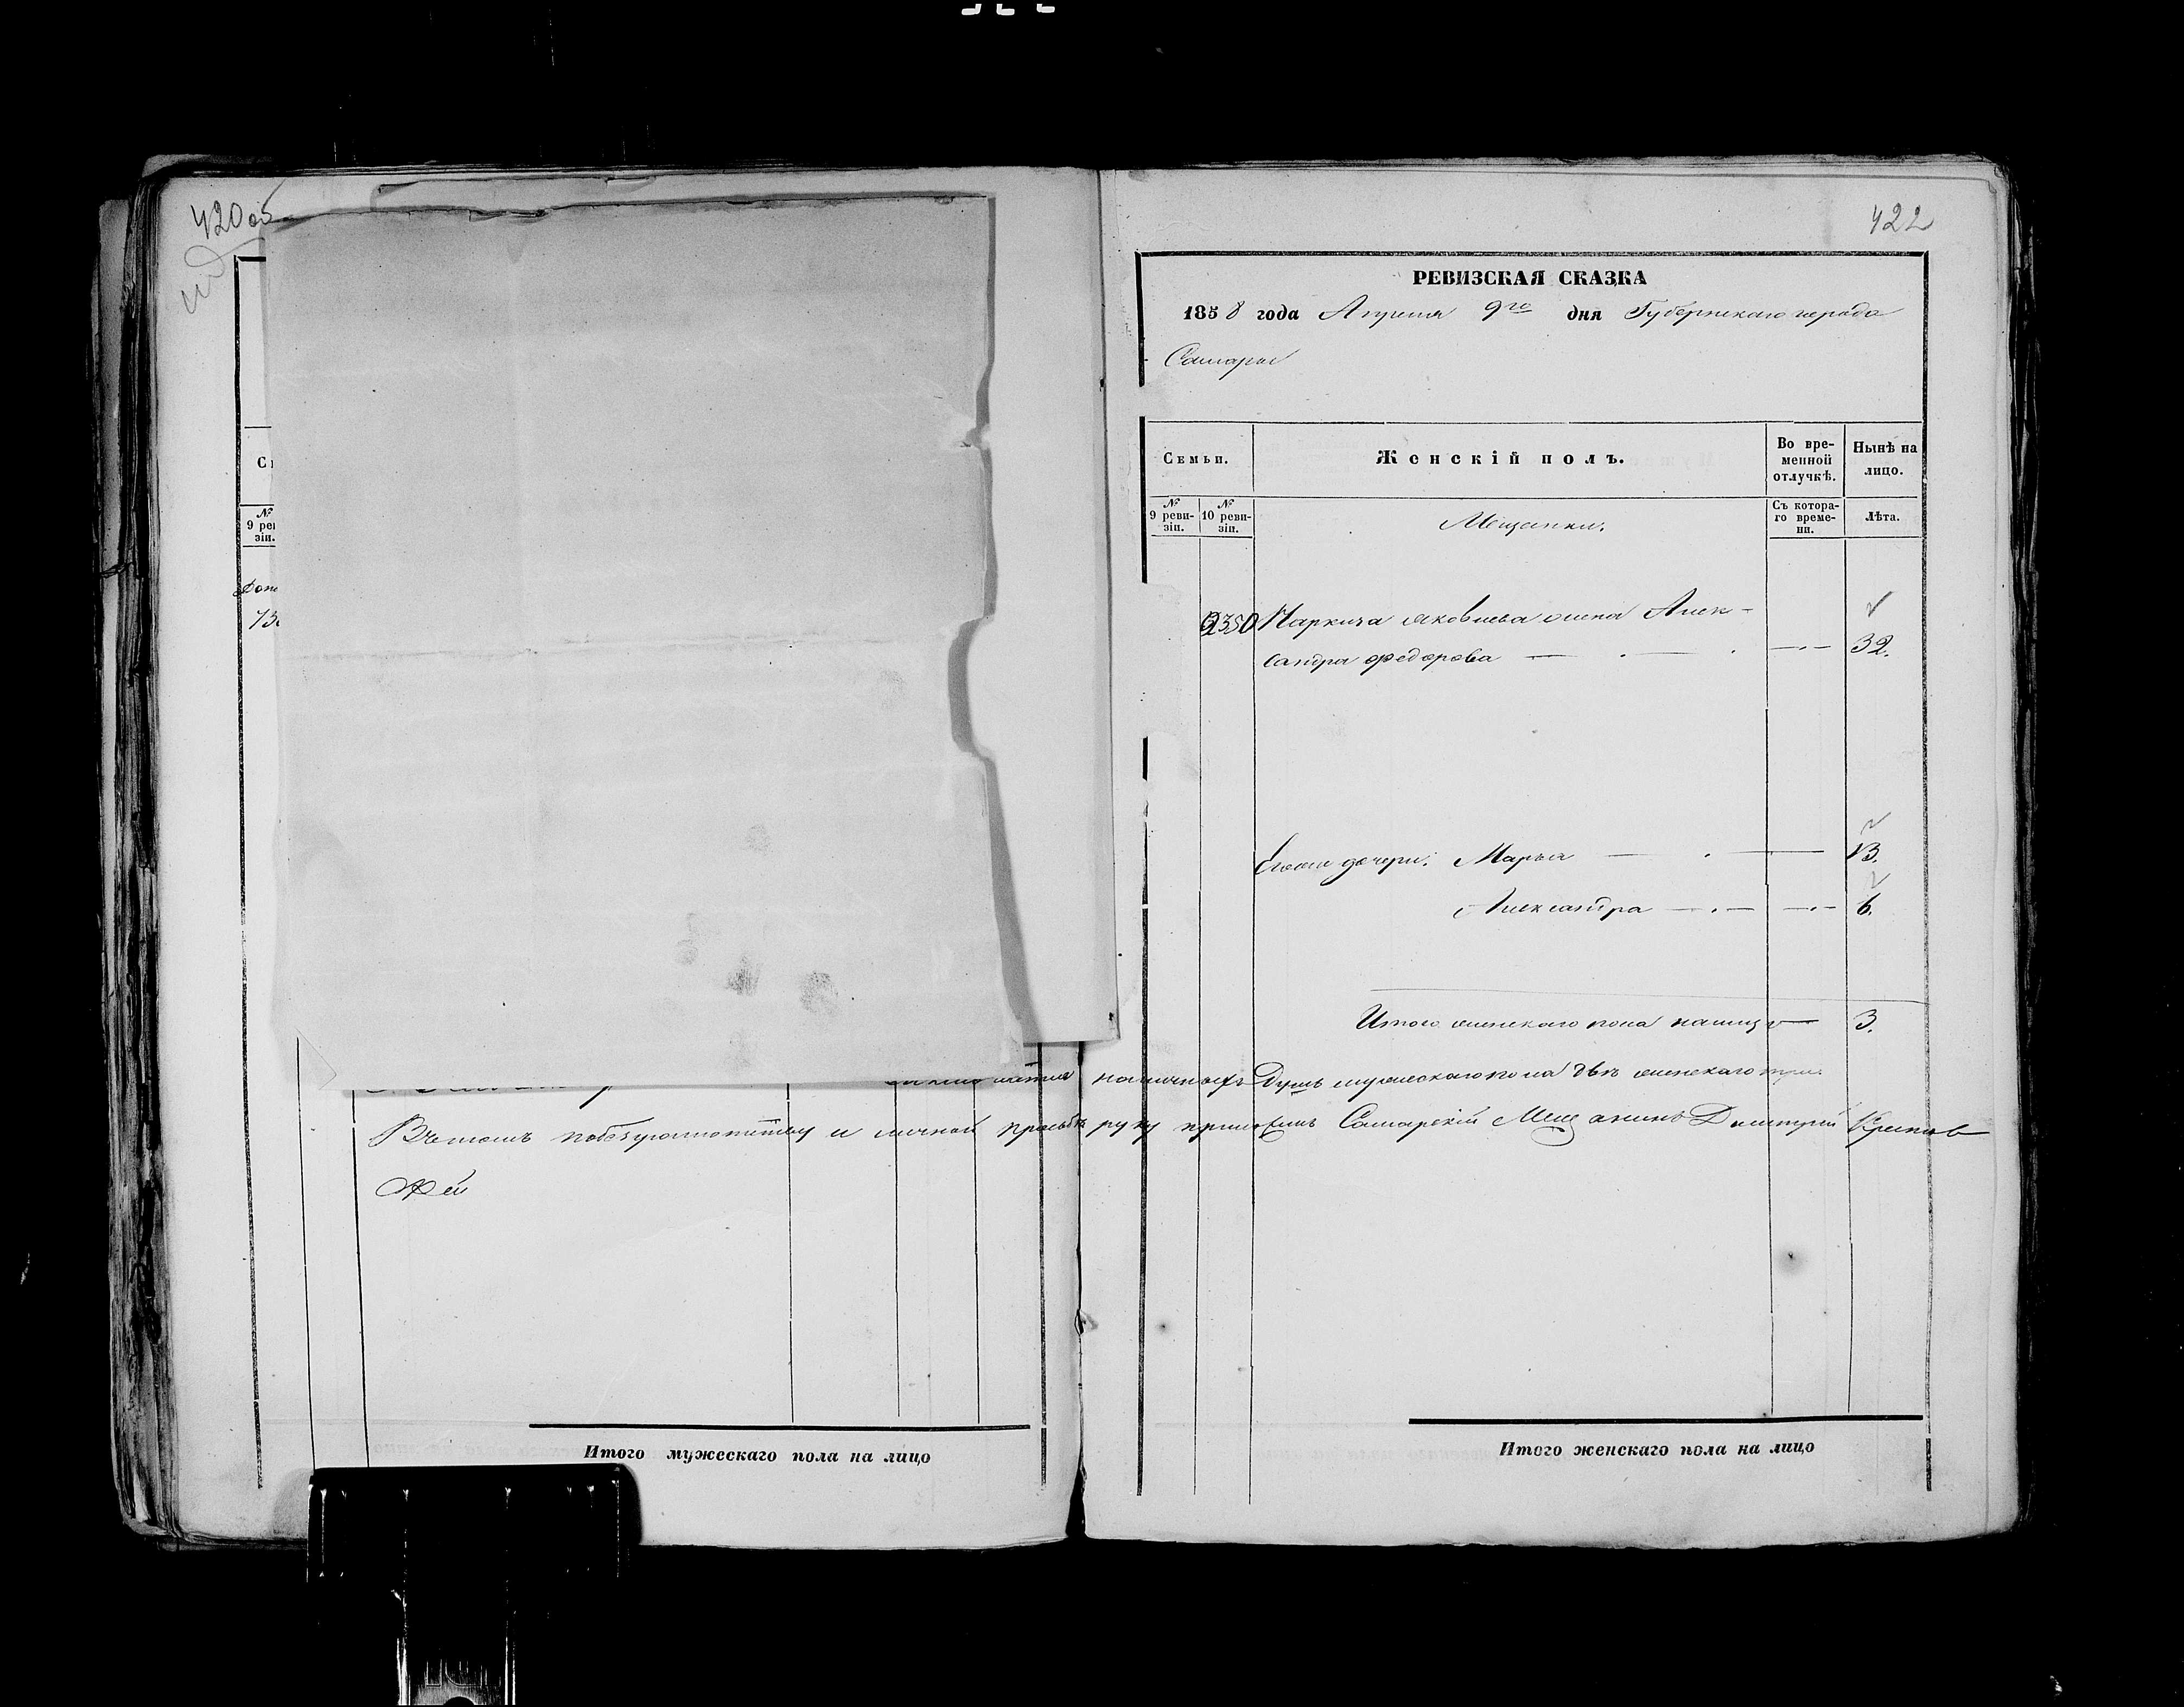 420 об
422
РЕВИЗСКАЯ СКАЗКА
1858 года Апреля 9го дня Губернскаго города
Самары
Семьи.
Женскій полъ.
Во временной отлучкѣ.
Нынѣ на лицо.
№ 9 ревизіи.
№ 10 ревизіи.
Мещанки.
Съ котораго времени.
Лѣта.
№
9 ре
зіи.
2350 Яковлева жена Алек-
сандра Федорова 32.
Егоже дочери: Марья 13.
Александра 6.
Итого женскаго пола налицо 3.
наличныхъ Душъ мужескаго пола двѣ женскаго три
Вчемъ и личной прозьбѣ руку приложилъ Самарскій Мещанинъ Дмитрий
Итого мужескаго пола на лицо
Итого женскаго пола на лицо